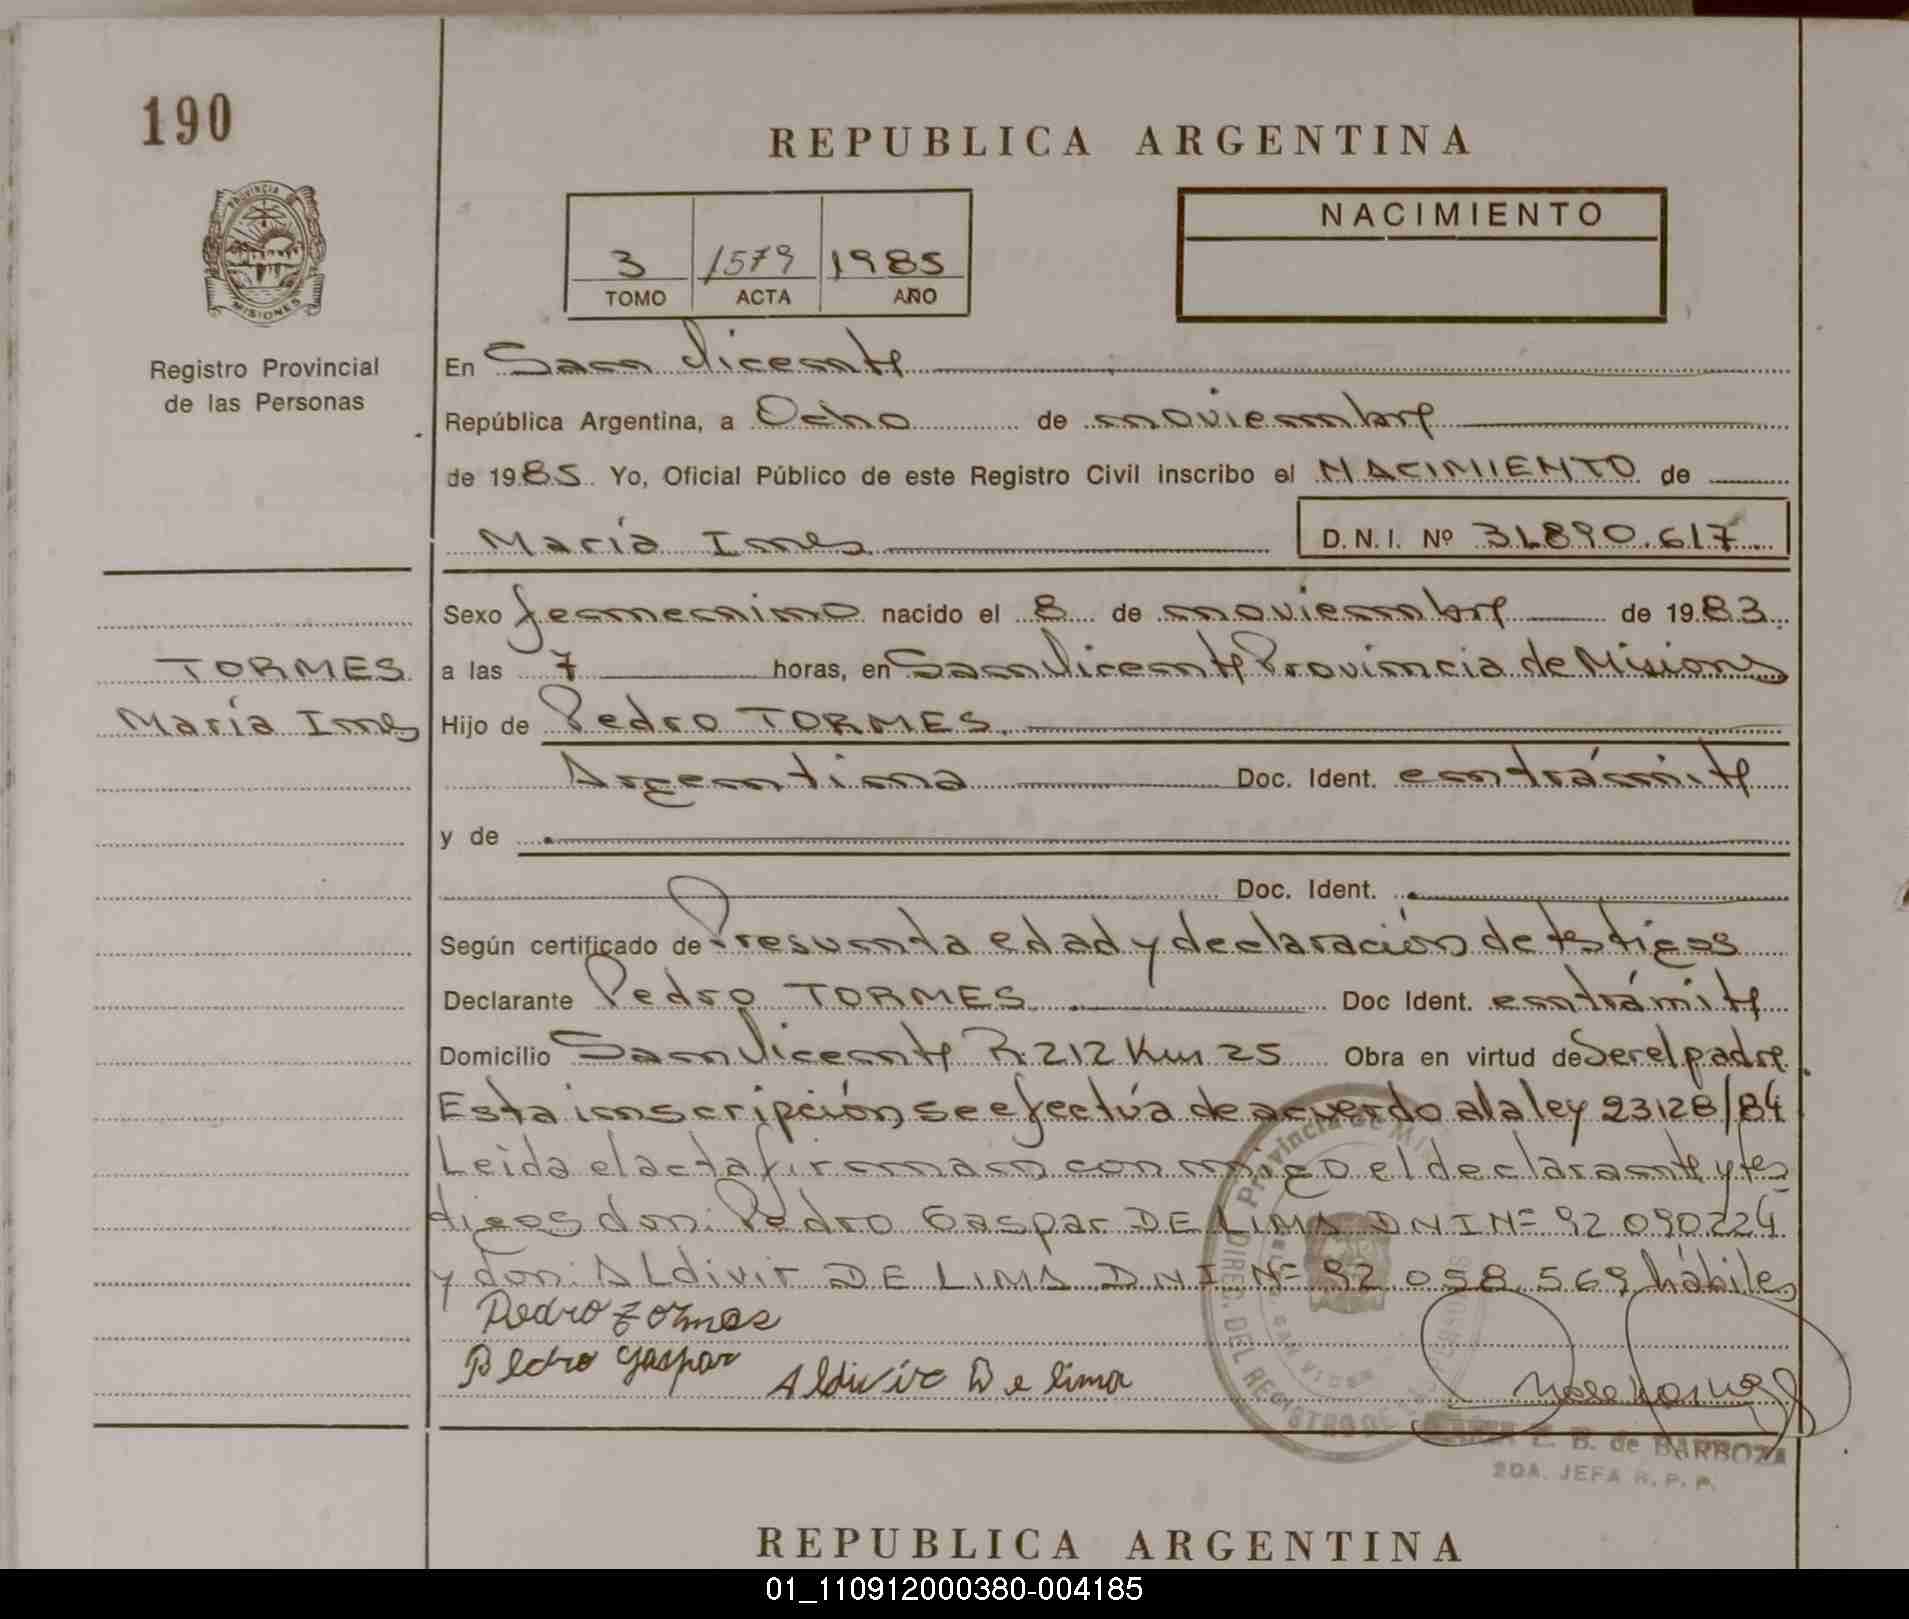 190
REPUBLICA ARGENTINA
NACIMIENTO
3 1579 1985
TOMO ACTA AÑO
PROVINCIA DE
MISIONES
Registro Provincial
de las Personas
En San Vicente
República Argentina, a Ocho de noviembre
de 1985 Yo, Oficial Público de este Registro Civil inscribo el NACIMIENTO de
María Ines D.N.I. Nº 31.890.617
Sexo femenino nacido el 8 de noviembre de 1983
TORMES
María Ines
a las 7 horas, en San Vicente Provincia de Misiones
Hijo de Pedro TORMES
Argentina Doc. Ident. en trámite
y de
Doc. Ident.
Según certificado de Presunta edad y declaración de testigos
Declarante Pedro TORMES Doc Ident. en trámite
Domicilio San Vicente R. 212 Km 25 Obra en virtud de Ser el padre.
Esta inscripción se efectúa de acuerdo a la ley 23128/84
Leida el acta firman con migo el declarante y tes
tigos don: Pedro Gaspar DE LIMA DNI Nº 92 090224
y don: Aldivir DE LIMA DNI Nº 92 058.569 hábiles
Pedro tormes
Pedro gaspar Aldivir De lima
E. B. de BARBOZA
2DA. JEFA R. P. P.
REPUBLICA ARGENTINA
01_110912000380-004185